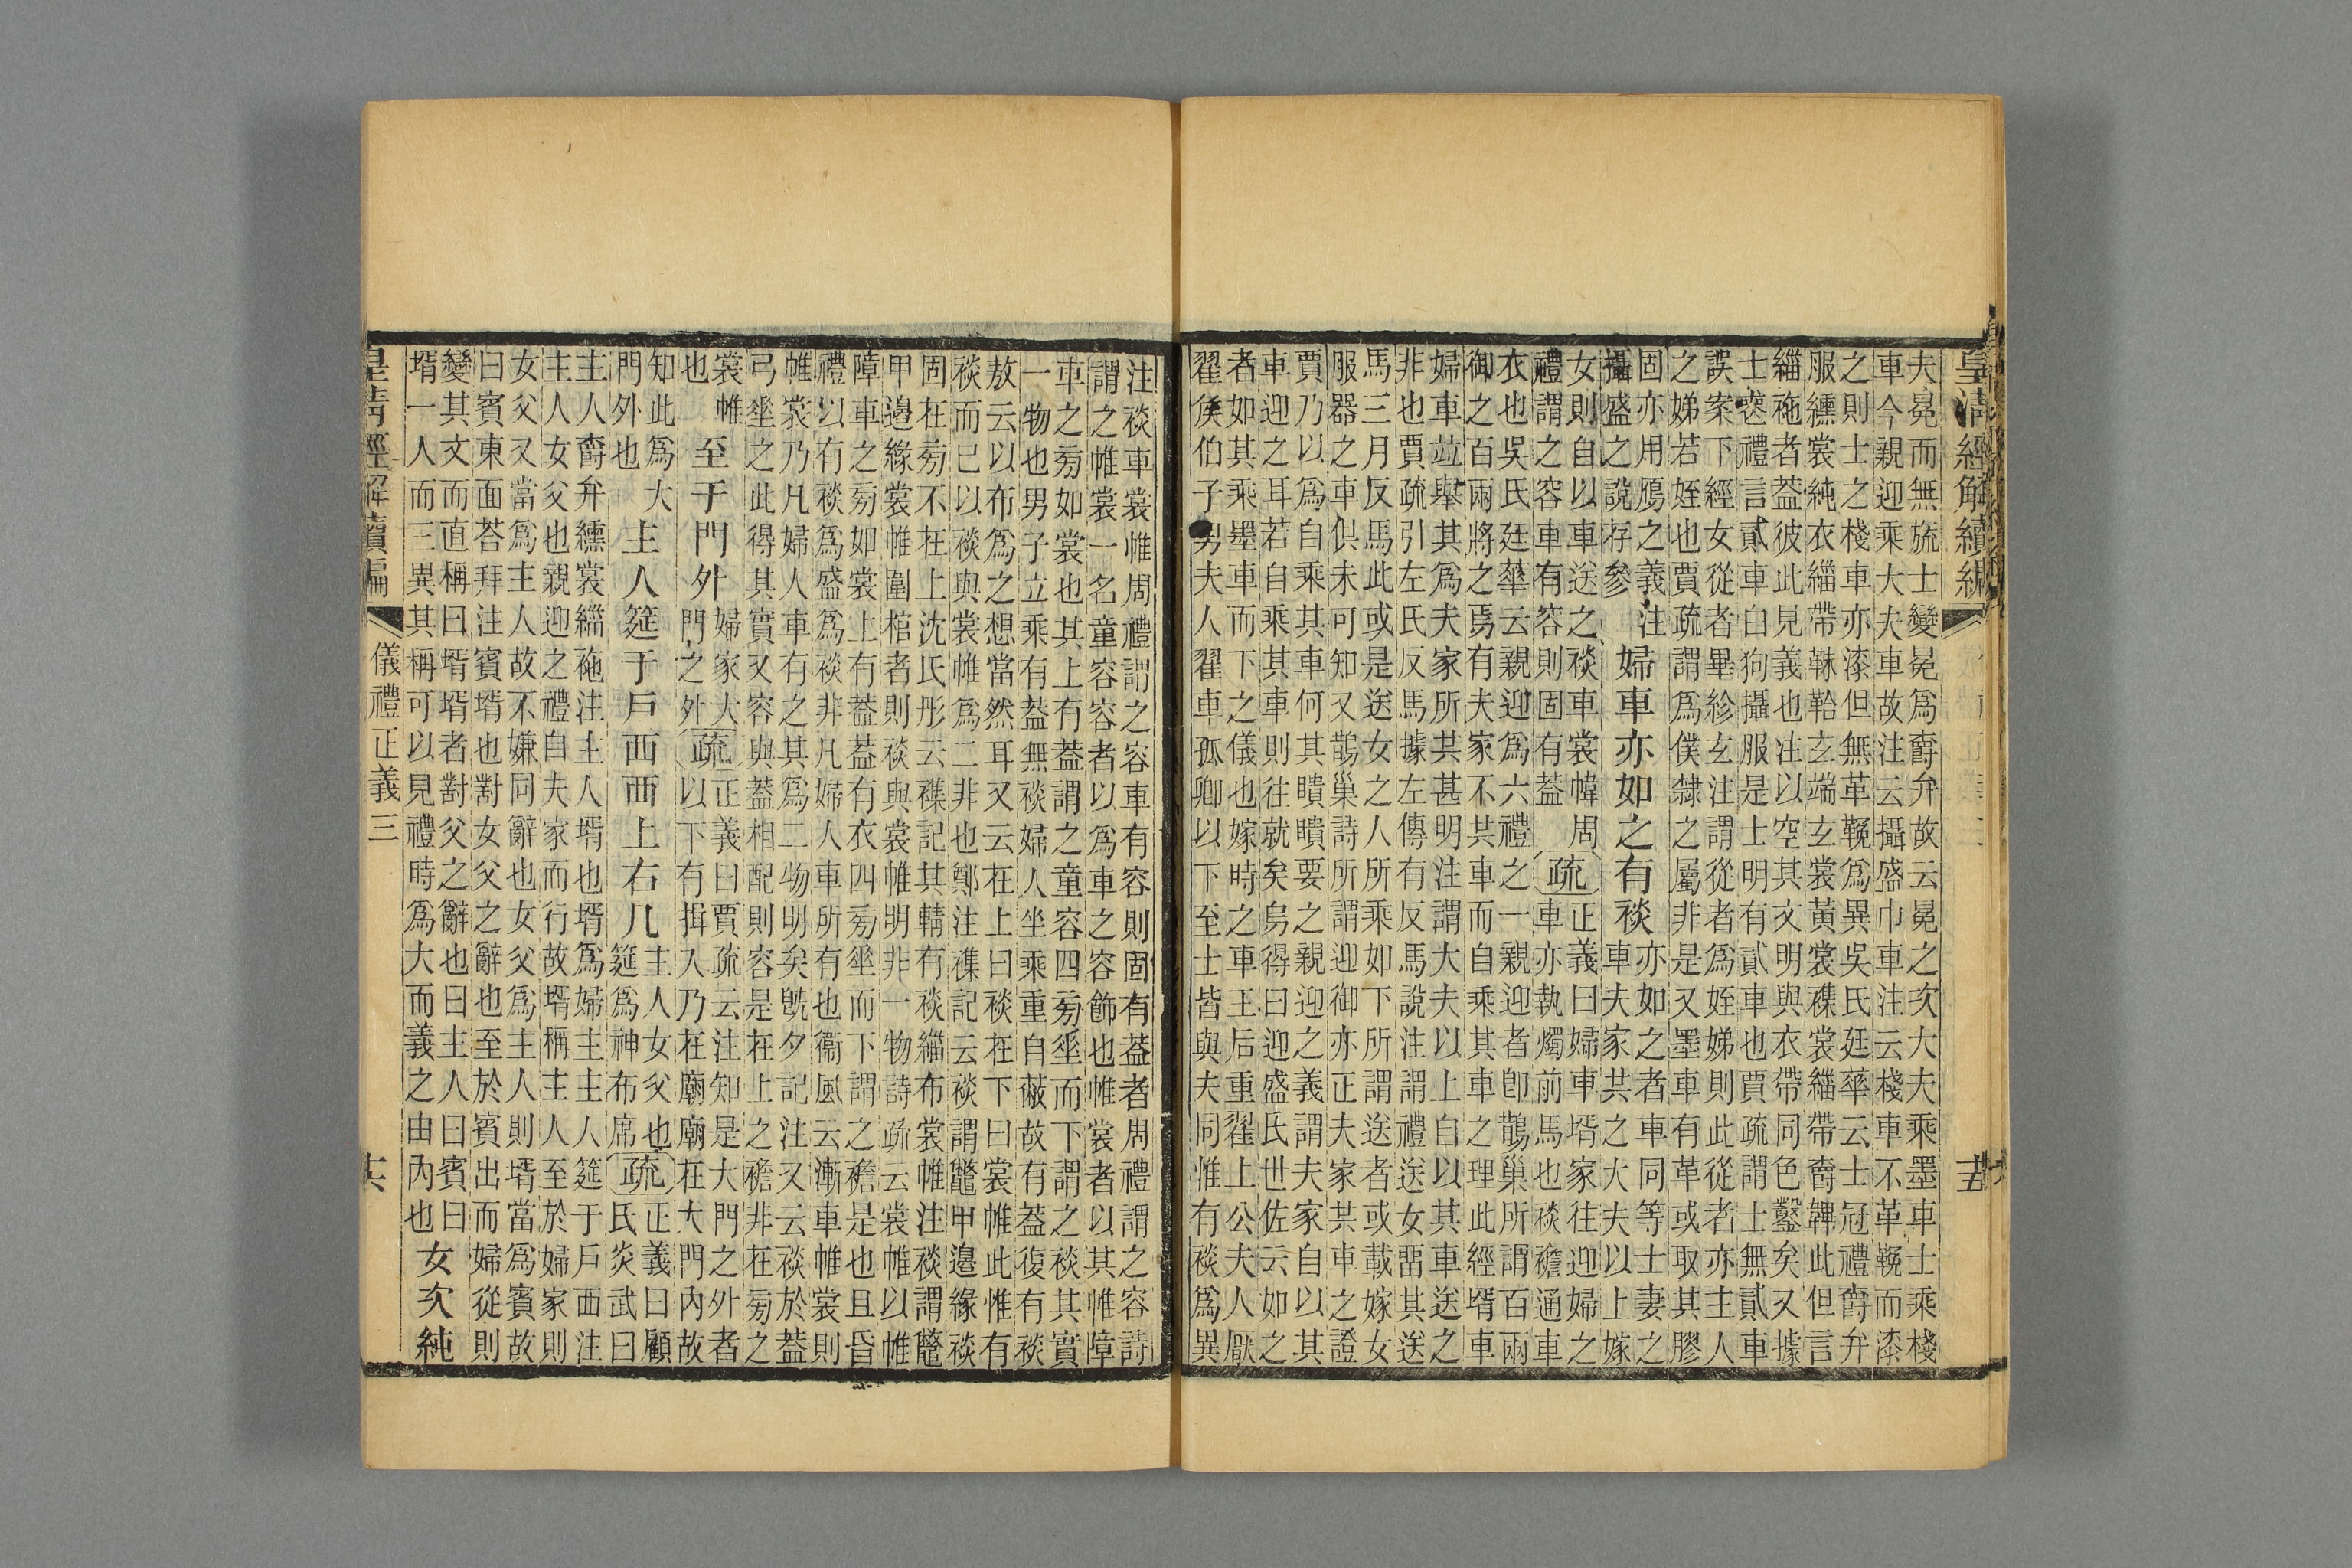 皇清經解續編
夫冕而無旒士變冕爲爵弁故云冕之次大夫乘墨車士乘棧
車今親迎乘大夫車故注云攝盛巾車注云棧車不革鞔而漆
之則士之棧車亦漆但無革鞔爲異吳氏廷華云士冠禮爵弁
服纁裳純衣緇帶韎韐玄端玄裳黃裳襍裳緇帶爵韠此但言
緇袘者葢彼此見義也注以空其文明與衣帶同色鑿矣又據
士喪禮言貳車白狗攝服是士明有貳車也賈疏謂士無貳車
誤案下經女從者畢袗玄注謂從者爲姪娣則此從者亦主人
之娣若姪也賈疏謂爲僕隸之屬非是又墨車有革或取其膠
固亦用鴈之義注
攝盛之說存參
婦車亦如之有裧
亦如之者車同等士妻之
車夫家共之大夫以上嫁
女則自以車送之裧車裳幃周
禮謂之容車有容則固有葢
疏
正義曰婦車壻家往迎婦之
車亦執燭前馬也裧襜通車
衣也吳氏廷華云親迎爲六禮之一親迎者卽鵲巢所謂百兩
御之百兩將之焉有夫家不共車而自乘其車之理此經壻車
婦車竝舉其爲夫家所共甚明注謂大夫以上自以其車送之
非也賈疏引左氏反馬據左傳有反馬說注謂禮送女畱其送
馬三月反馬此或是送女之人所乘如下所謂送者或載嫁女
服器之車俱未可知又鵲巢詩所謂迎御亦正夫家共車之證
賈乃以爲自乘其車何其瞶瞶要之親迎之義謂夫家自以其
車迎之耳若自乘其車則往就矣舄得曰迎盛氏世佐云如之
者如其乘墨車而下之儀也嫁時之車王后重翟上公夫人厭
翟矦伯子男夫人翟車孤卿以下至士皆與夫同惟有裧爲異
注裧車裳帷周禮謂之容車有容則固有葢者周禮謂之容詩
謂之帷裳一名童容容者以爲車之容飾也帷裳者以其帷障
車之旁如裳也其上有葢謂之童容四旁坐而下謂之裧其實
一物也男子立乘有葢無裧婦人坐乘重自蔽故有葢復有裧
敖云以布爲之想當然耳又云在上曰裧在下曰裳帷此惟有
裧而已以裧與裳帷爲二非也鄭注襍記云裧謂鼈甲邉緣裧
固在旁不在上沈氏彤云襍記其輤有裧緇布裳帷注裧謂鼈
甲邉緣裳帷圍棺者則裧與裳帷明非一物詩疏云裳帷以帷
障車之旁如裳上有葢葢有衣四旁坐而下謂之襜是也且昏
禮以有裧爲盛爲裧非凡婦人車所有也衞風云漸車帷裳則
帷裳乃凡婦人車有之其爲二物明矣旣夕記注又云裧於葢
弓坐之此得其實又容與葢相配則容是在上之襜非在旁之
裳帷
也
至于門外
婦家大
門之外
疏
正義曰賈疏云注知是大門之外者
以下有揖入乃在廟廟在大門內故
知此爲大
門外也
主人筵于戶西西上右几
主人女父也
筵爲神布席
疏
正義曰顧
氏炎武曰
主人爵弁纁裳緇袘注主人壻也壻爲婦主主人筵于戶西注
主人女父也親迎之禮自夫家而行故壻稱主人至於婦家則
女父又當爲主人故不嫌同辭也女父爲主人則壻當爲賓故
曰賓東面荅拜注賓壻也對女父之辭也至於賓出而婦從則
變其文而直稱曰壻壻者對父之辭也曰主人曰賓曰
壻一人而三異其稱可以見禮時爲大而義之由內也
女次純
皇清經解續編
儀禮正義三